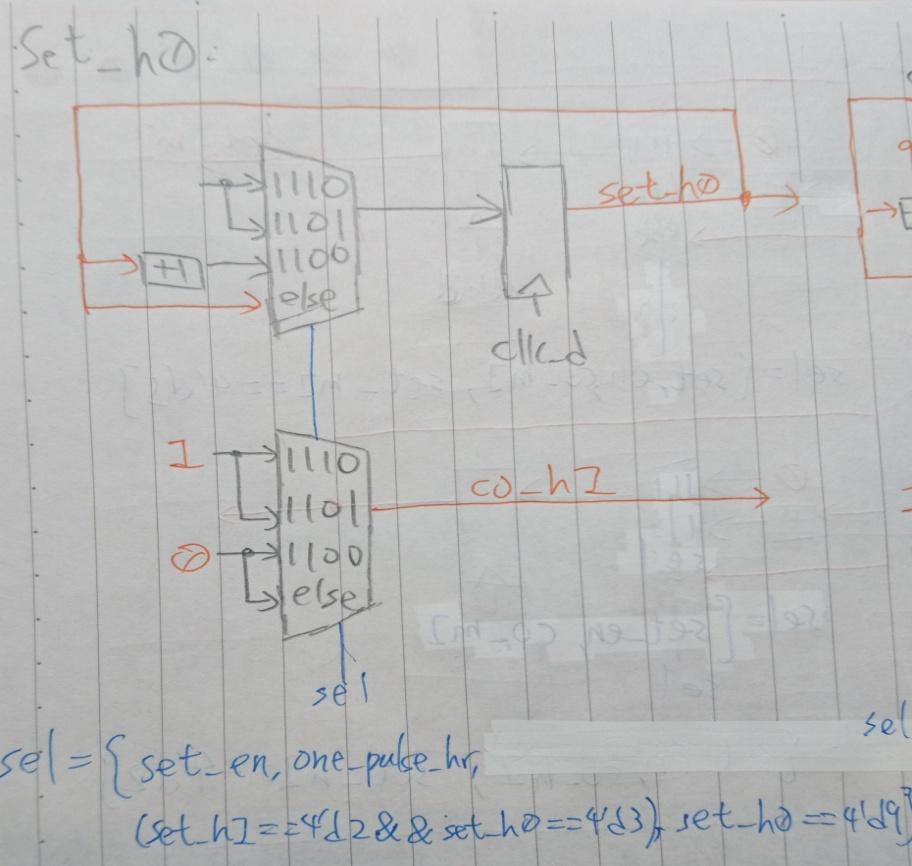 Set_h0:
1110
1101
1100
else
+1
set_h0
clk_d
1
0
1110
1101
1100
else
co_h1
sel
sel
sel = { set_en, one_pulse_hr,
(set_h1==4'd2 && set_h0==4'd3), set_h0==4'd9}